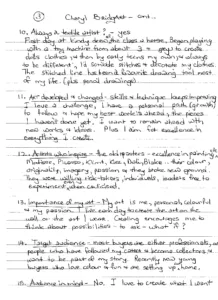 ③ Cheryl Bridgart - cont..
10. Always a textile artist? - yes
First day at kindy drew the class a horse. Began playing
with a toy machine from about 3 + yrs) to create
dolls clothes + then by early teens my own + always
to be different, I'd create stitches + distribute my clothes.
The stitched line has been a favourite drawing tool most
of my life (plus pencil drawings).
11. Art developed + changed - skills + technique keeps improving
I love a challenge, I have a personal path (growth)
to follow + hope my best work is ahead, the pieces
I haven't done yet. I want to remain ahead with
new works + ideas. Plus I aim for excellence in
everything I create.
12. Artists who inspire - the old masters - excellence in painting, etc
Matisse, Picasso, Klimt, Rex, Bob, Blake - their colour,
originality, imagery, passion as they broke new ground.
They were willing risk-takers, individuals, leaders, free to
experiment when criticised.
13. Importance of my art - My art is me, personal, colourful
+ my passion. I live each day to create the art on the
wall or the art I wear. Creating encourages me to
think about possibilities - to ask - what if?
14. Target audience - most buyers are either professionals, or
people who have followed my career + become collectors +
want to be part of my story. Recently new young
buyers who love colour + fun are setting up home.
15. Audience in mind - No. I love to create what I want